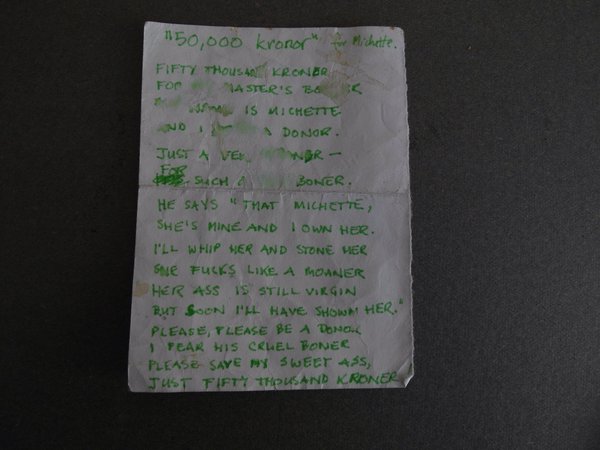 "50,000 kronor" for Michette.
FIFTY THOUSAND KRONER
FOR MASTER'S
IS MICHETTE
AND I A DONOR.
JUST A
FOR
SUCH A BONER.
HE SAYS "THAT MICHETTE,
SHE'S MINE AND I OWN HER.
I'LL WHIP HER AND STONE HER
SHE FUCKS LIKE A MOANER
HER ASS IS STILL VIRGIN
BUT SOON I'LL HAVE SHOWM HER."
PLEASE, PLEASE BE A DONOR
I FEAR HIS CRUEL BONER
PLEASE SAVE MY SWEET ASS,
JUST FIFTY THOUSAND KRONER